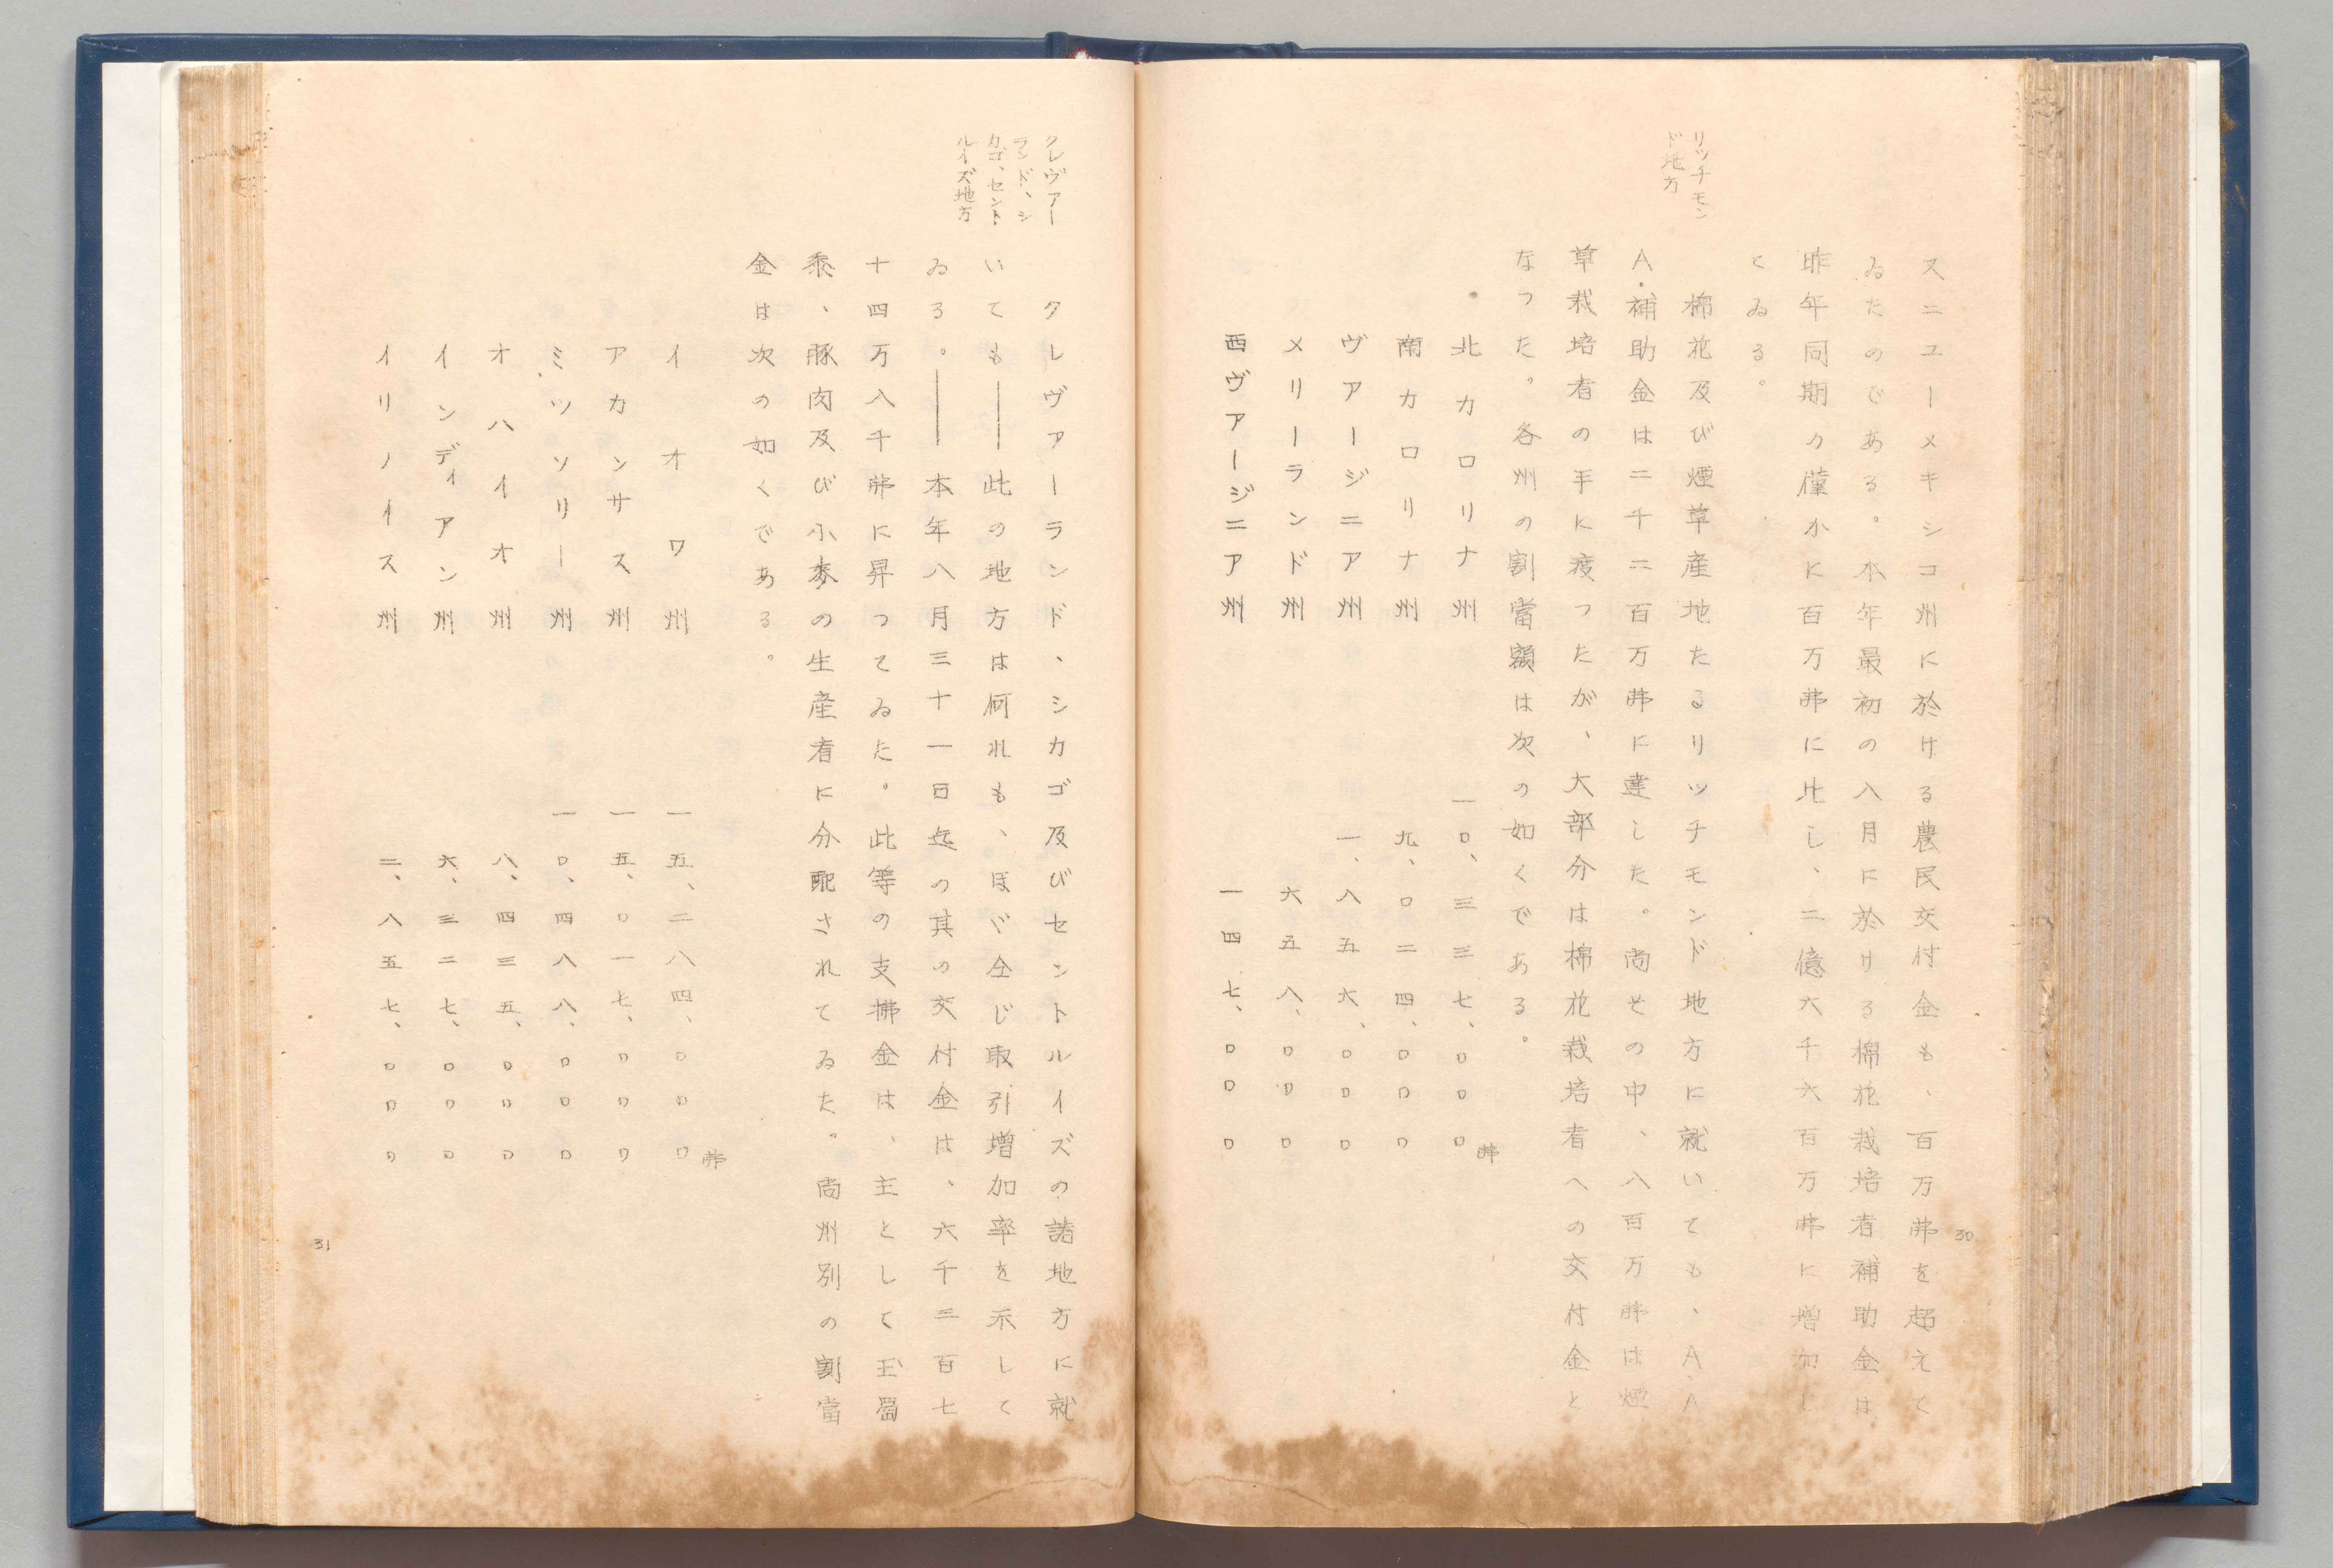 リッチモン
ド地方
又ニユーメキシコ州に於ける農民交付金も、百万弗を超えて
ゐたのである。本年最初の八月に於ける棉花栽培者補助金は
昨年同期の僅小に百万弗に比し、二億六千六百万弗に増加し
てゐる。
棉花及び煙草産地たるリッチモンド地方に就いても、A、A、
A・補助金は二千二百万弗に達した。尚その中、八百万弗は煙
草栽培者の手に渡つたが、大部分は棉花栽培者への交付金と
なつた。各州の割當額は次の如くである。
北カロリナ州 一〇、三三七、〇〇〇弗
南カロリナ州 九、〇二四、〇〇〇
ヴアージニア州 一、八五六、〇〇〇
メリーランド州 六五八、〇〇〇
西ヴアージニア州 一四七、〇〇〇
30
クレヴアー
ランド、シ
カゴ、セント
ルイズ地方
クレヴアーランド、シカゴ及びセントルイズの諸地方に就
いても――此の地方は何れも、ほゞ仝じ取引増加率を示して
ゐる。――本年八月三十一日迄の其の交付金は、六千三百七
十四万八千弗に昇つてゐた。此等の支拂金は、主として玉蜀
黍、豚肉及び小麥の生産者に分配されてゐた。尚州別の割當
金は次の如くである。
イオワ州 一五、二八四、〇〇〇弗
アカンサス州 一五、〇一七、〇〇〇
ミツソリー州 一〇、四八八、〇〇〇
オハイオ州 八、四三五、〇〇〇
インディアン州 六、三二七、〇〇〇
イリノイス州 二、八五七、〇〇〇
31